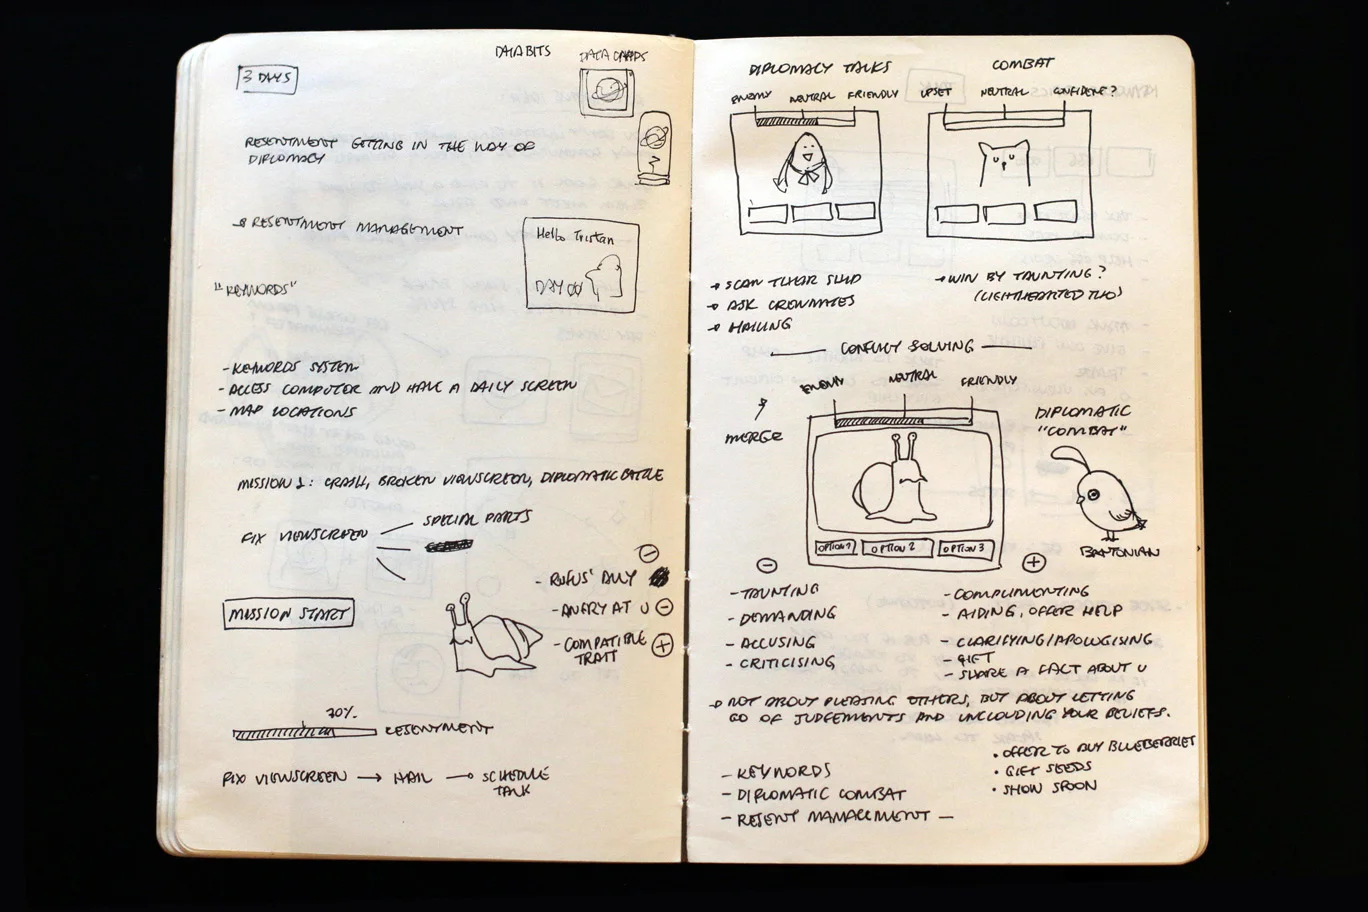 3 DAYS
DATABITS
DATA CARDS
RESENTMENT GETTING IN THE WAY OF
DIPLOMACY
→ RESENTMENT MANAGEMENT
Hello Tristan
DAY
"KEYWORDS"
- KEYWORDS SYSTEM
- ACCESS COMPUTER AND HAVE A DAILY SCREEN
- MAP LOCATIONS
MISSION 1: CRASH, BROKEN VIEWSCREEN, DIPLOMATIC BATTLE
FIX VIEWSCREEN
SPECIAL PARTS
MISSION START
- RUFUS' ALLY
- ANGRY AT U
- COMPATIBLE
TRAIT
70%
RESENTMENT
FIX VIEWSCREEN → HAIL → SCHEDULE
TALK
DIPLOMACY TALKS
ENEMY NEUTRAL FRIENDLY
COMBAT
UPSET NEUTRAL CONFIDENT?
→ SCAN THEIR SHIP
→ ASK CREWMATES
→ HAILING
→ WIN BY TAUNTING?
(LIGHTHEARTED THO)
CONFLICT SOLVING
MERGE
ENEMY NEUTRAL FRIENDLY
OPTION 1 OPTION 2 OPTION 3
DIPLOMATIC
"COMBAT"
BANTONIAN
- TAUNTING
- DEMANDING
- ACCUSING
- CRITICISING
- COMPLIMENTING
- AIDING, OFFER HELP
- CLARIFYING/APOLOGISING
- GIFT
- SHARE A FACT ABOUT U
→ NOT ABOUT PLEASING OTHERS, BUT ABOUT LETTING
GO OF JUDGEMENTS AND UNCLOUDING YOUR BELIEFS.
- KEYWORDS
- DIPLOMATIC COMBAT
- RESENT MANAGEMENT —
• OFFER TO BUY BLUEBERRIES
• GIFT SEEDS
• SHOW SPOON